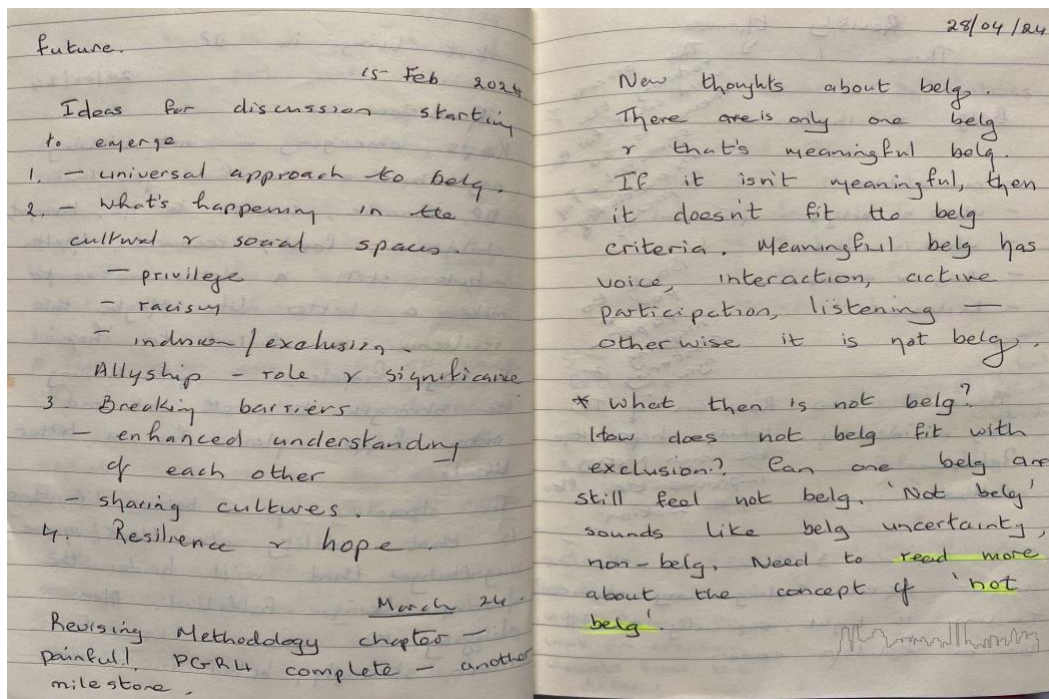 future.
15 Feb 2024
Ideas for discussion starting
to emerge
1. – universal approach to belg.
2. – what's happening in the
cultural & social spaces.
– privilege
– racism
– inclusion / exclusion.
Allyship – role & significance
3. Breaking barriers
– enhanced understanding
of each other
– sharing cultures.
4. Resilience & hope.
March 24.
Revising Methodology chapter –
painful! PGR4 complete – another
milestone.
28/04/24
New thoughts about belg.
There are is only one belg
& that's meaningful belg.
If it isn't meaningful, then
it doesn't fit the belg
criteria. Meaningful belg has
voice, interaction, active
participation, listening –
otherwise it is not belg.
* What then is not belg?
How does not belg fit with
exclusion? Can one belg and
still feel not belg. 'Not belg'
sounds like belg uncertainty,
non-belg. Need to read more
about the concept of 'not
belg'.